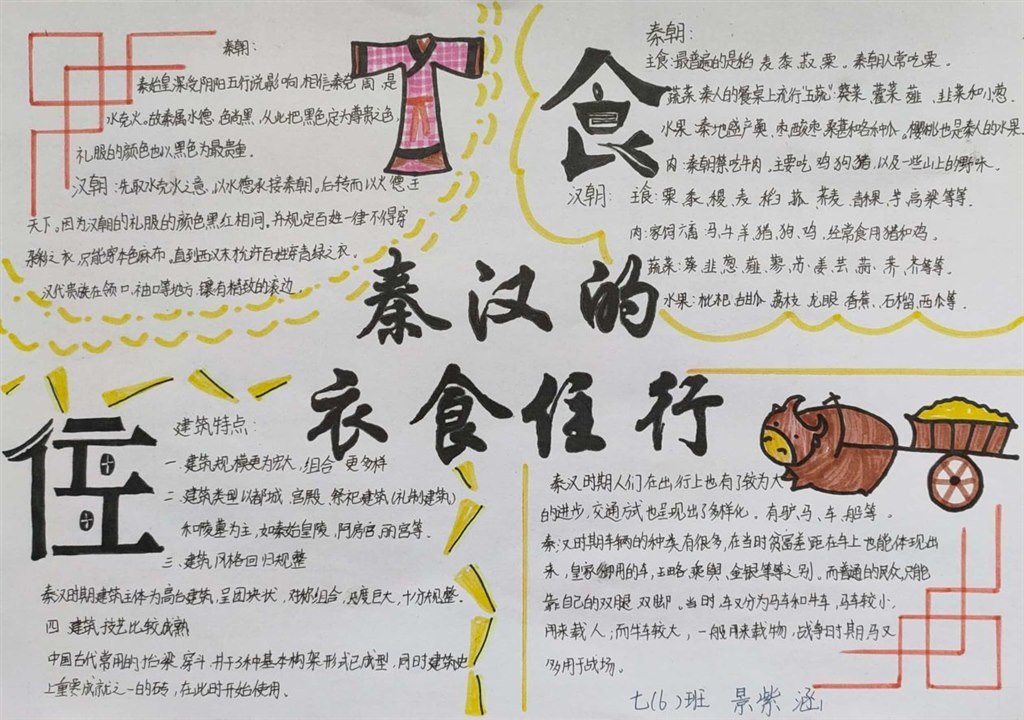 秦汉的
衣食住行
秦朝:
秦始皇深受阴阳五行说影响,相信秦克周,是
水克火。故秦属水德,色尚黑,从此把黑色定为尊贵之色,
礼服的颜色也以黑色为最贵重。
汉朝:先取水克火之意,以水德承接秦朝。后转而以火德王
天下。因为汉朝的礼服的颜色黑红相间。并规定百姓一律不得穿
杂彩之衣,只能穿本色麻布。直到西汉末允许百姓穿青绿之衣。
汉代贵族在领口、袖口等地方,镶有精致的滚边。
食
秦朝:
主食:最普遍的是 麦 黍 菽 粟。秦朝人常吃粟。
蔬菜:秦人的餐桌上流行"五蔬":葵菜、藿菜、薤、韭菜和小葱.
水果:秦地盛产 枣 桑葚和各种 。樱桃也是秦人的水果.
肉:秦朝禁吃牛肉,主要吃,鸡 狗 猪,以及一些山上的野味。
汉朝: 主食:粟 黍 稷 麦 稻 菰 荞麦 青稞 芋 高粱等等.
肉:家饲六畜:马,牛,羊,猪,狗,鸡,经常食用猪和鸡。
蔬菜:葵 韭 葱 薤 蓼 苏 姜 芸 荠 芥 等等.
水果:枇杷 甜 荔枝 龙眼 香蕉,石榴,西 等.
住
建筑特点:
一.建筑规模更为宏大,组合 更多样
二.建筑类型以都城、宫殿、祭祀建筑(礼制建筑)
和陵墓为主,如秦始皇陵,阿房宫,丽宫等.
三.建筑风格回归规整
秦汉时期建筑主体为高台建筑,呈团块状,对称组合,尺度巨大,十分规整。
四 建筑技艺比较成熟
中国古代常用的抬梁,穿斗,井干3种基本构架形式已成型,同时建筑史
上重要成就之一的砖,在此时开始使用.
秦汉时期人们在出行上也有了较为大
的进步,交通方式也呈现出了多样化。有驴、马、车、船等。
秦汉时期车辆的种类有很多,在当时贫富差距在车上也能体现出
来,皇家御用的车,玉辂,乘舆、金银等等之别。而普通的民众,只能
靠自己的双腿 双脚。当时,车又分为马车和牛车,马车较小,
用来载人;而牛车较大,一般用来载物,战争时期马又
多用于战场。
七(6)班 景紫涵